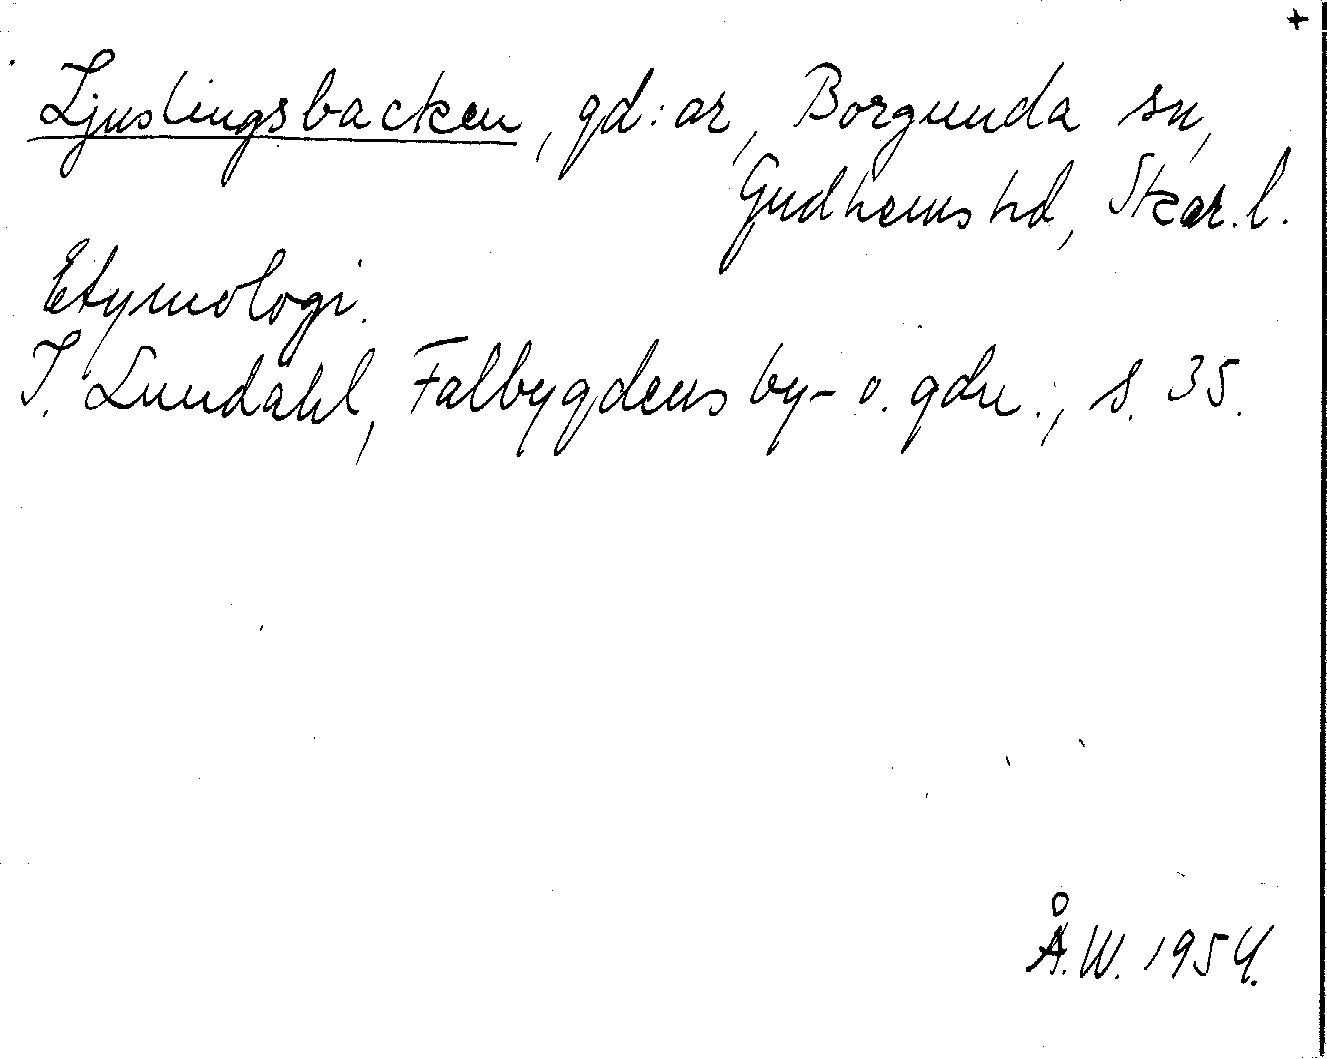 +
Ljuslingsbacken, gd:ar, Borgunda sn,
Gudhems hd, Skar. l.
Etymologi.
I. Lundahl, Falbygdens by- o. gdn., s. 35.
Å.W. 1954.